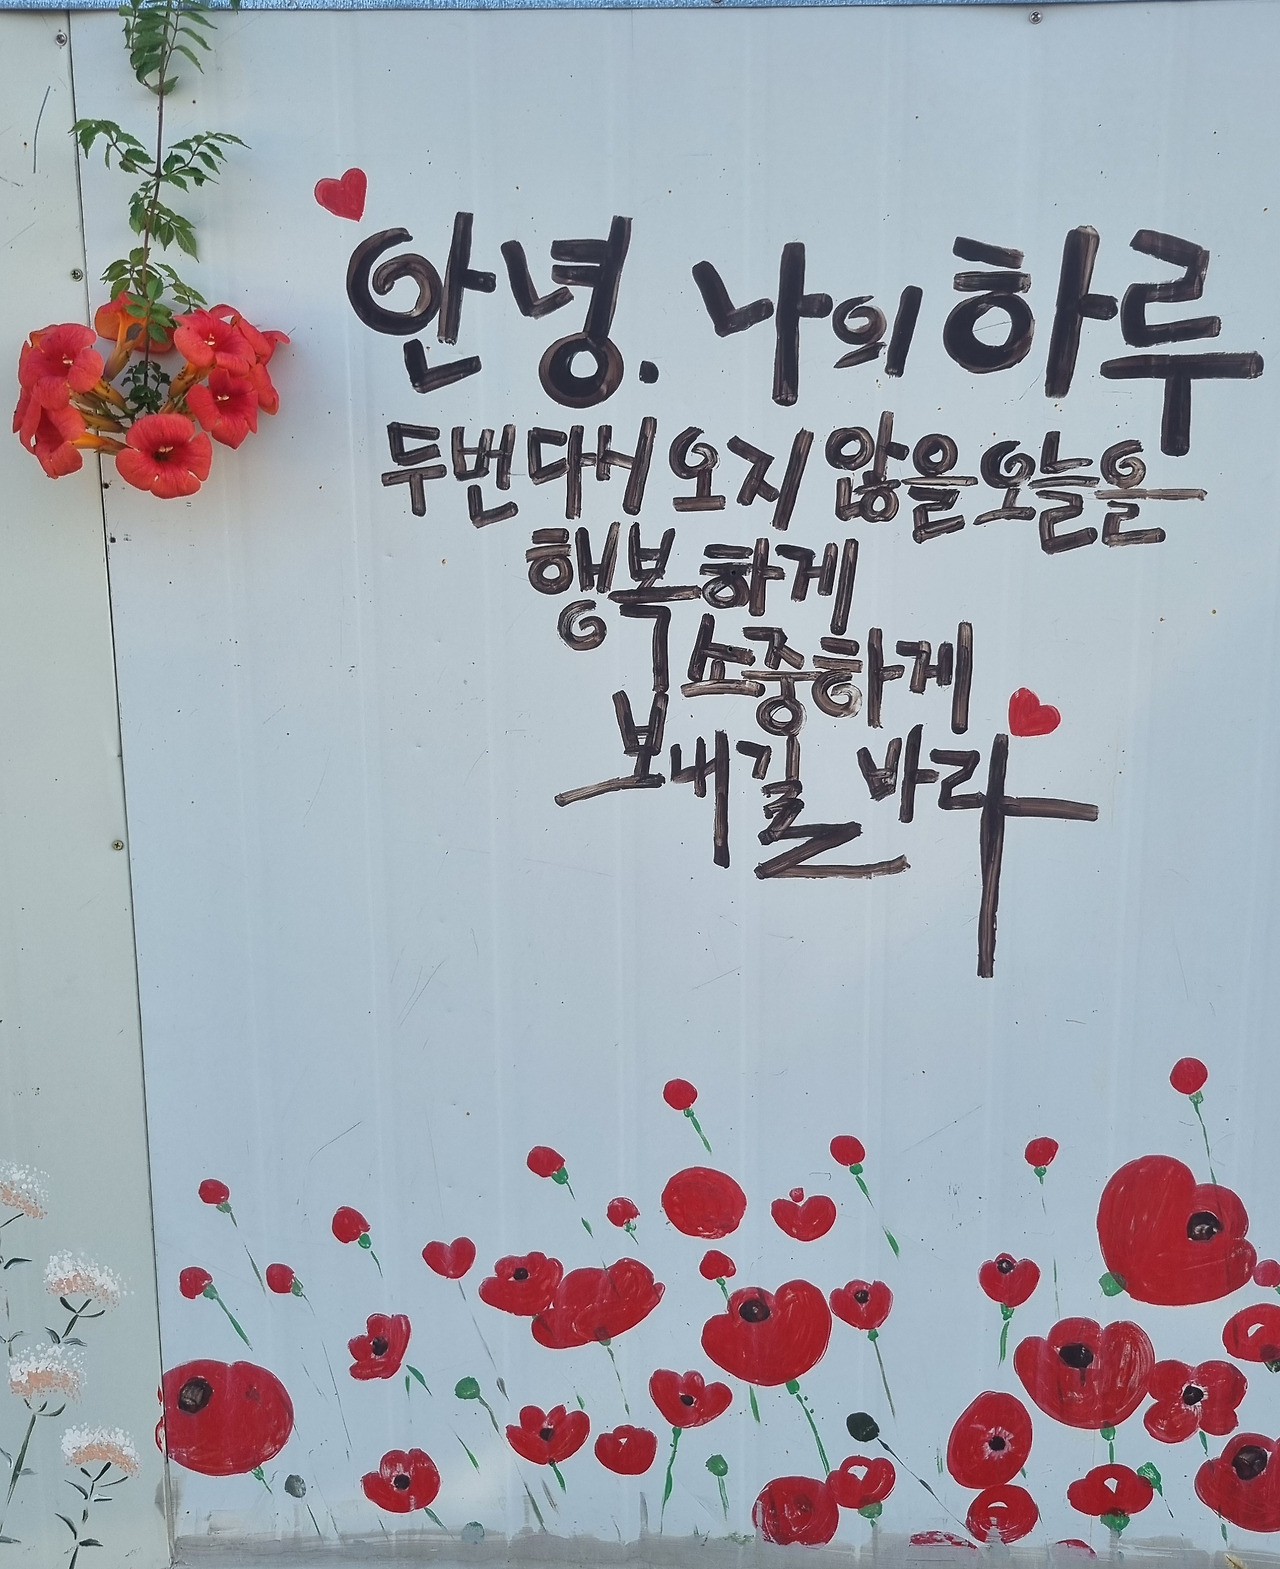 안녕. 나의 하루
두번 다시 오지 않을 오늘을
행복하게
소중하게
보내길 바라